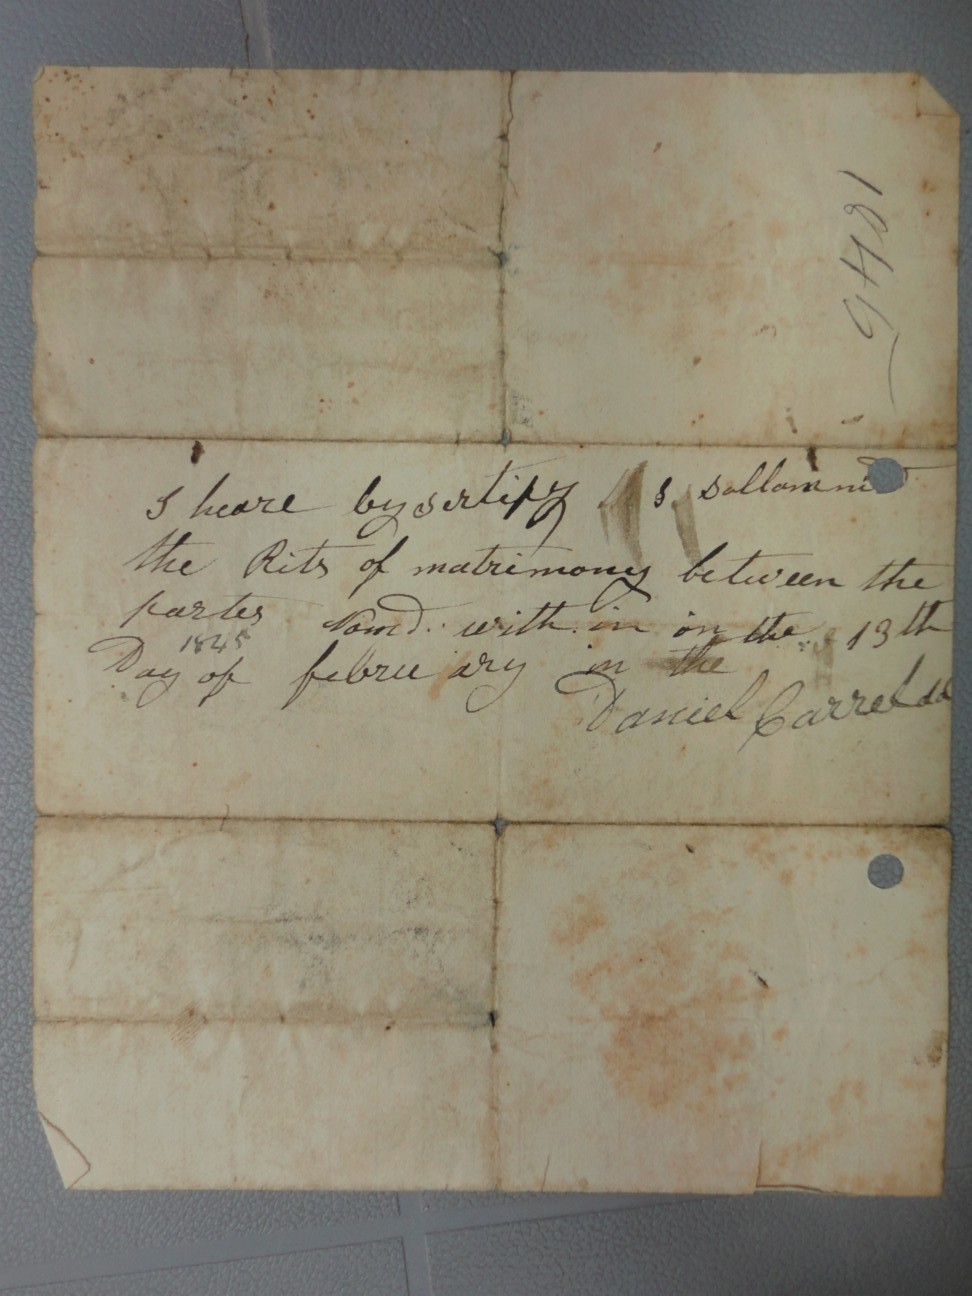 I heare by sertify I sollamnis
the Rits of matrimony between the
partes Namd. with in on the 13th
1845
Day of februeary in the
Daniel Carrel